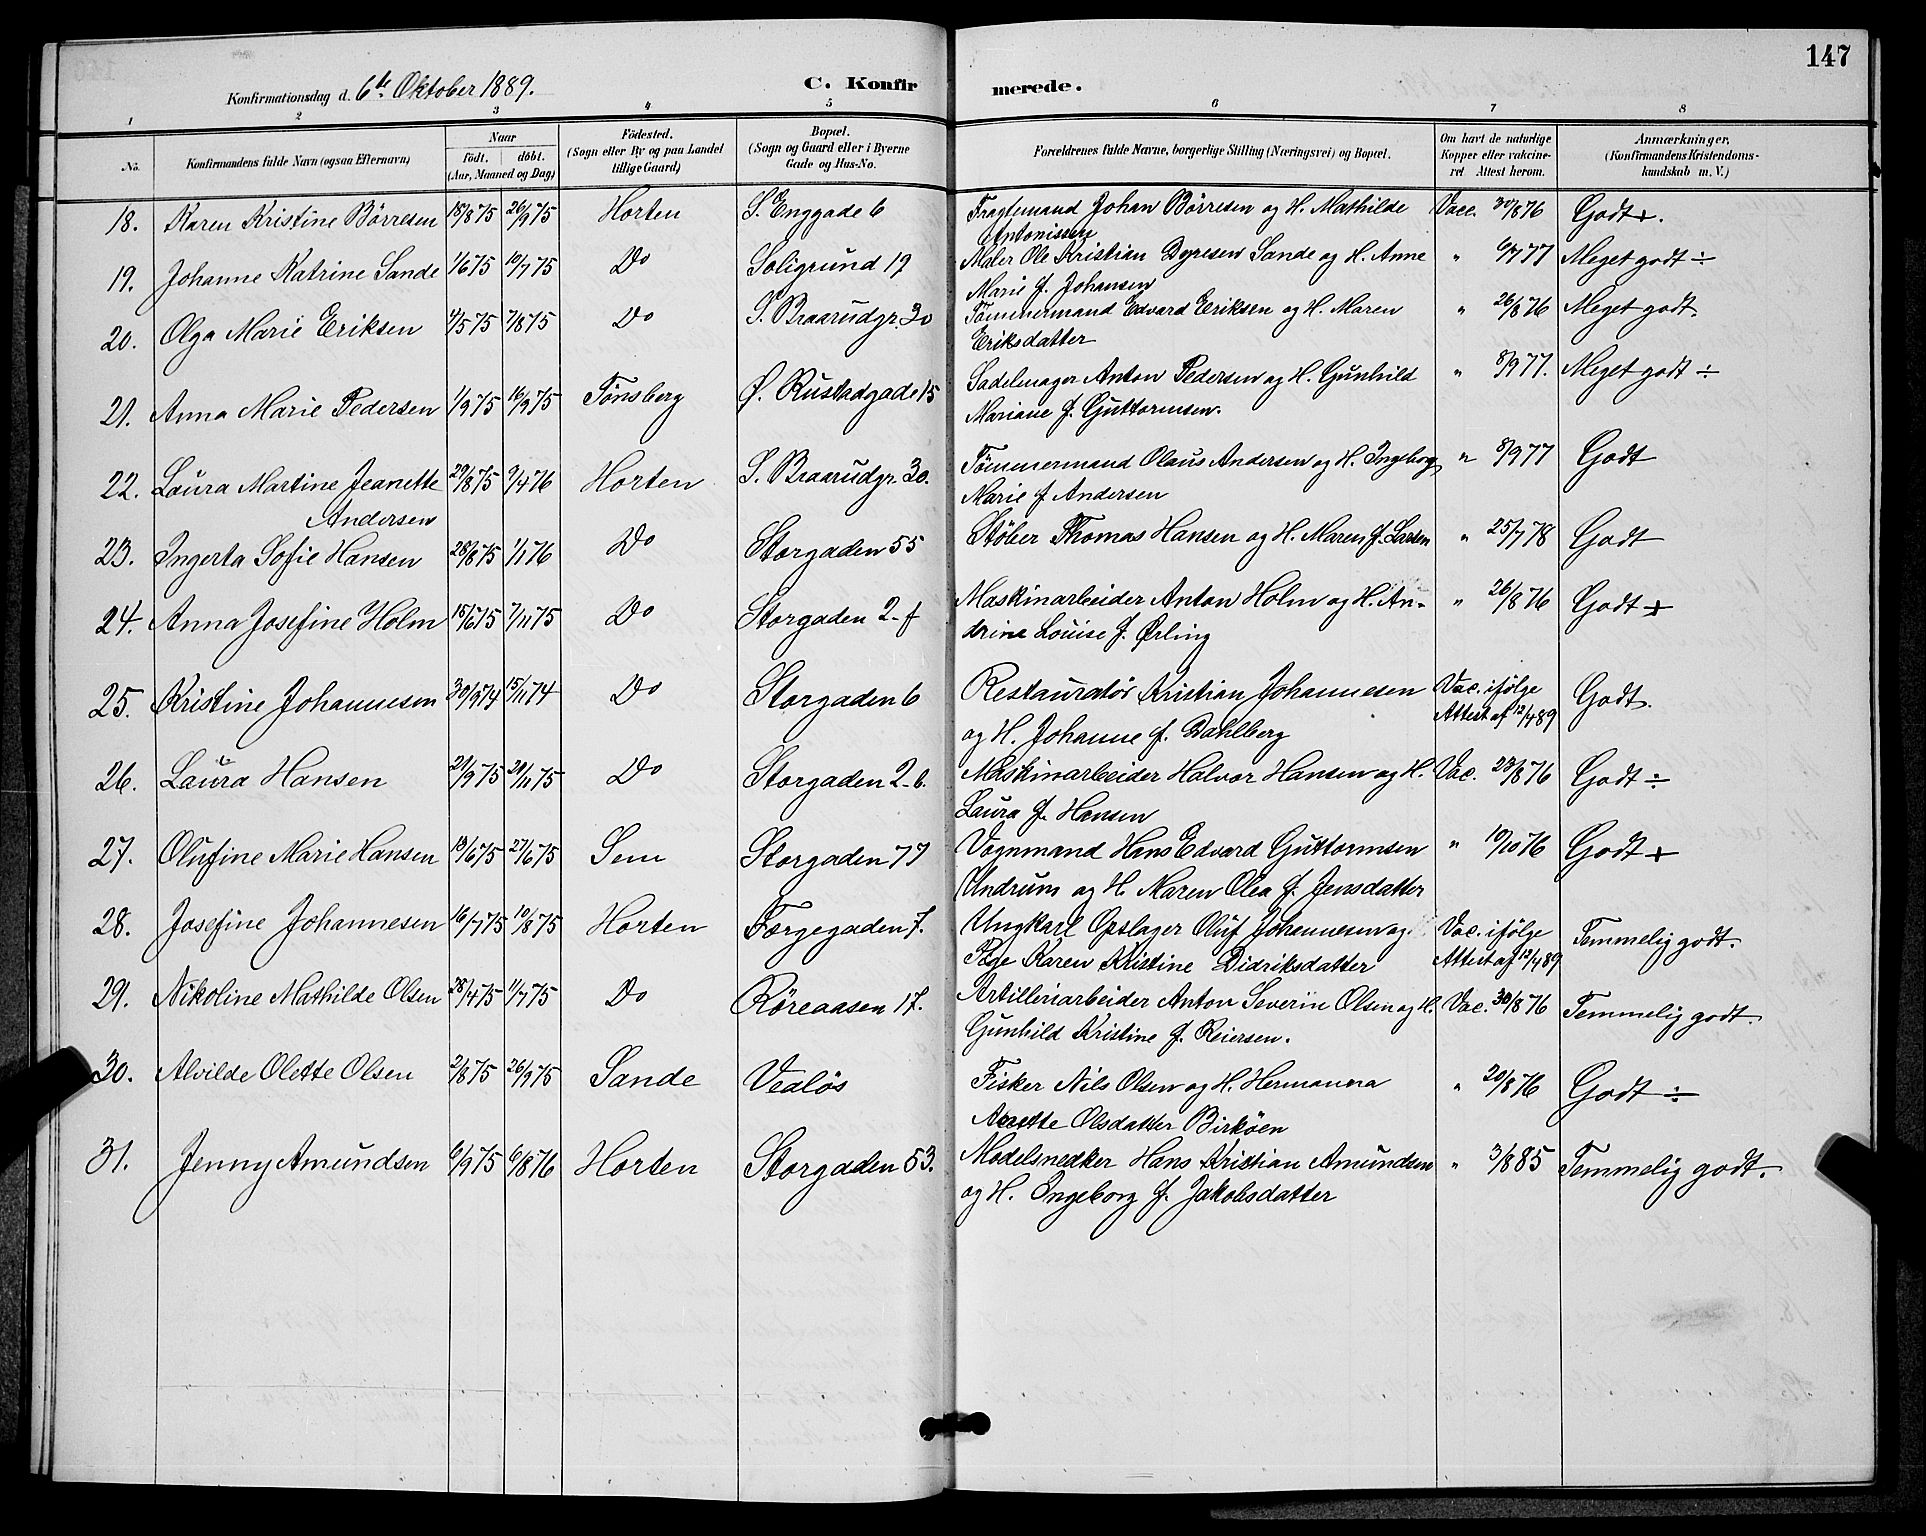 147
Konfirmationsdag d. 6te Oktober 1889. C. Konfirmerede.
1 2 3 4 5 6 7 8
No. Konfirmandens fulde Navn (ogsaa Efternavn) Naar födt. döbt. (Aar, Maaned og Dag) Födested. (Sogn eller By og paa Landet tillige Gaard) Bopæl. (Sogn og Gaard eller i Byerne Gade og Hus-No. Forældrenes fulde Navne, borgerlige Stilling (Næringsvei) og Bopæl. Om havt de naturlige Kopper eller vakcineret Attest herom. Anmærkninger, (Konfirmandens Kristendomskundskab m. V.)
18. Karen Kristine Börresen 18/8 75 26/9 75 Horten S. Enggade 6 Fragtemand Johan Börresen og H. Mathilde Vacc. 30/8 76 Godt +.
Antonissen
19. Johanne Katrine Sande 1/6 75 10/7 75 Do Soligrund 19 Maler Ole Kristian Dyresen Sande og H. Anne " 6/7 77 Meget godt ÷
Marie f. Johansen
20. Olga Marie Eriksen 4/5 75 7/8 75 Do S. Braarudgr. 30 Tömmermand Edvard Eriksen og H. Maren " 26/8 76 Meget godt.
Eriksdatter
21. Anna Marie Pedersen 1/9 75 16/9 75 Tönsberg Ø. Rustadgade 15 Sadelmager Anton Pedersen og H. Gunhild " 8/9 77. Meget godt ÷
Mariane f. Guttormsen.
22. Laura Martine Jeanette 29/8 75 9/4 76 Horten S. Braarudgr. 30. Tömmermand Olaus Andersen og H. Ingeborg " 8/9 77 Godt
Andersen Marie f Andersen
23. Ingerta Sofie Hansen 28/8 75 1/1 76 Do Storgaden 55 Stöber Thomas Hansen og H. Maren f. Larsen " 25/7 78 Godt
24. Anna Josefine Holm 15/6 75 7/11 75 Do Storgaden 2-f Maskinarbeider Anton Holm og H. An- " 26/8 76 Godt +
drine Louise f. Ørling
25. Kristine Johannesen 30/9 74 15/11 74 Do Storgaden 6 Restauratör Kristian Johannesen Vac. ifölge Godt.
og H. Johanne f. Dahlberg Attest af 12/4 89
26. Laura Hansen 21/9 75 20/11 75 Do Storgaden 2-b. Maskinarbeider Halvor Hansen og H. Vac. 23/8 76 Godt ÷
Laura f. Hansen
27. Olufine Marie Hansen 13/6 75 27/6 75 Sem Storgaden 77 Vognmand Hans Edvard Guttormsen " 19/10 76 Godt +
Undrum og H. Maren Olea f. Jensdatter
28. Josefine Johannesen 16/7 75 10/8 75 Horten Færgegaden 7. Ungkarl Opslager Oluf Johannesen og Vac. ifölge Temmelig godt.
Pige Karen Kristine Didriksdatter Attest af 12/4 89
29. Nikoline Mathilde Olsen 28/4 75 11/7 75 Do Röreaasen 17. Artilleriarbeider Anton Severin Olsen og H. Vac. 30/8 76 Temmelig godt.
Gunhild Kristine f. Reiersen.
30. Alvilde Olette Olsen 2/8 75 26/9 75 Sande Vealös Fisker Nils Olsen og H. Hermanna " 20/8 76 Godt ÷
Olsdatter Birköen
31. Jenny Amundsen 6/9 75 6/8 76 Horten Storgaden 53. Modelsnedker Hans Kristian Amundsen " 3/8 85 Temmelig godt.
og H. Ingeborg f. Jakobsdatter